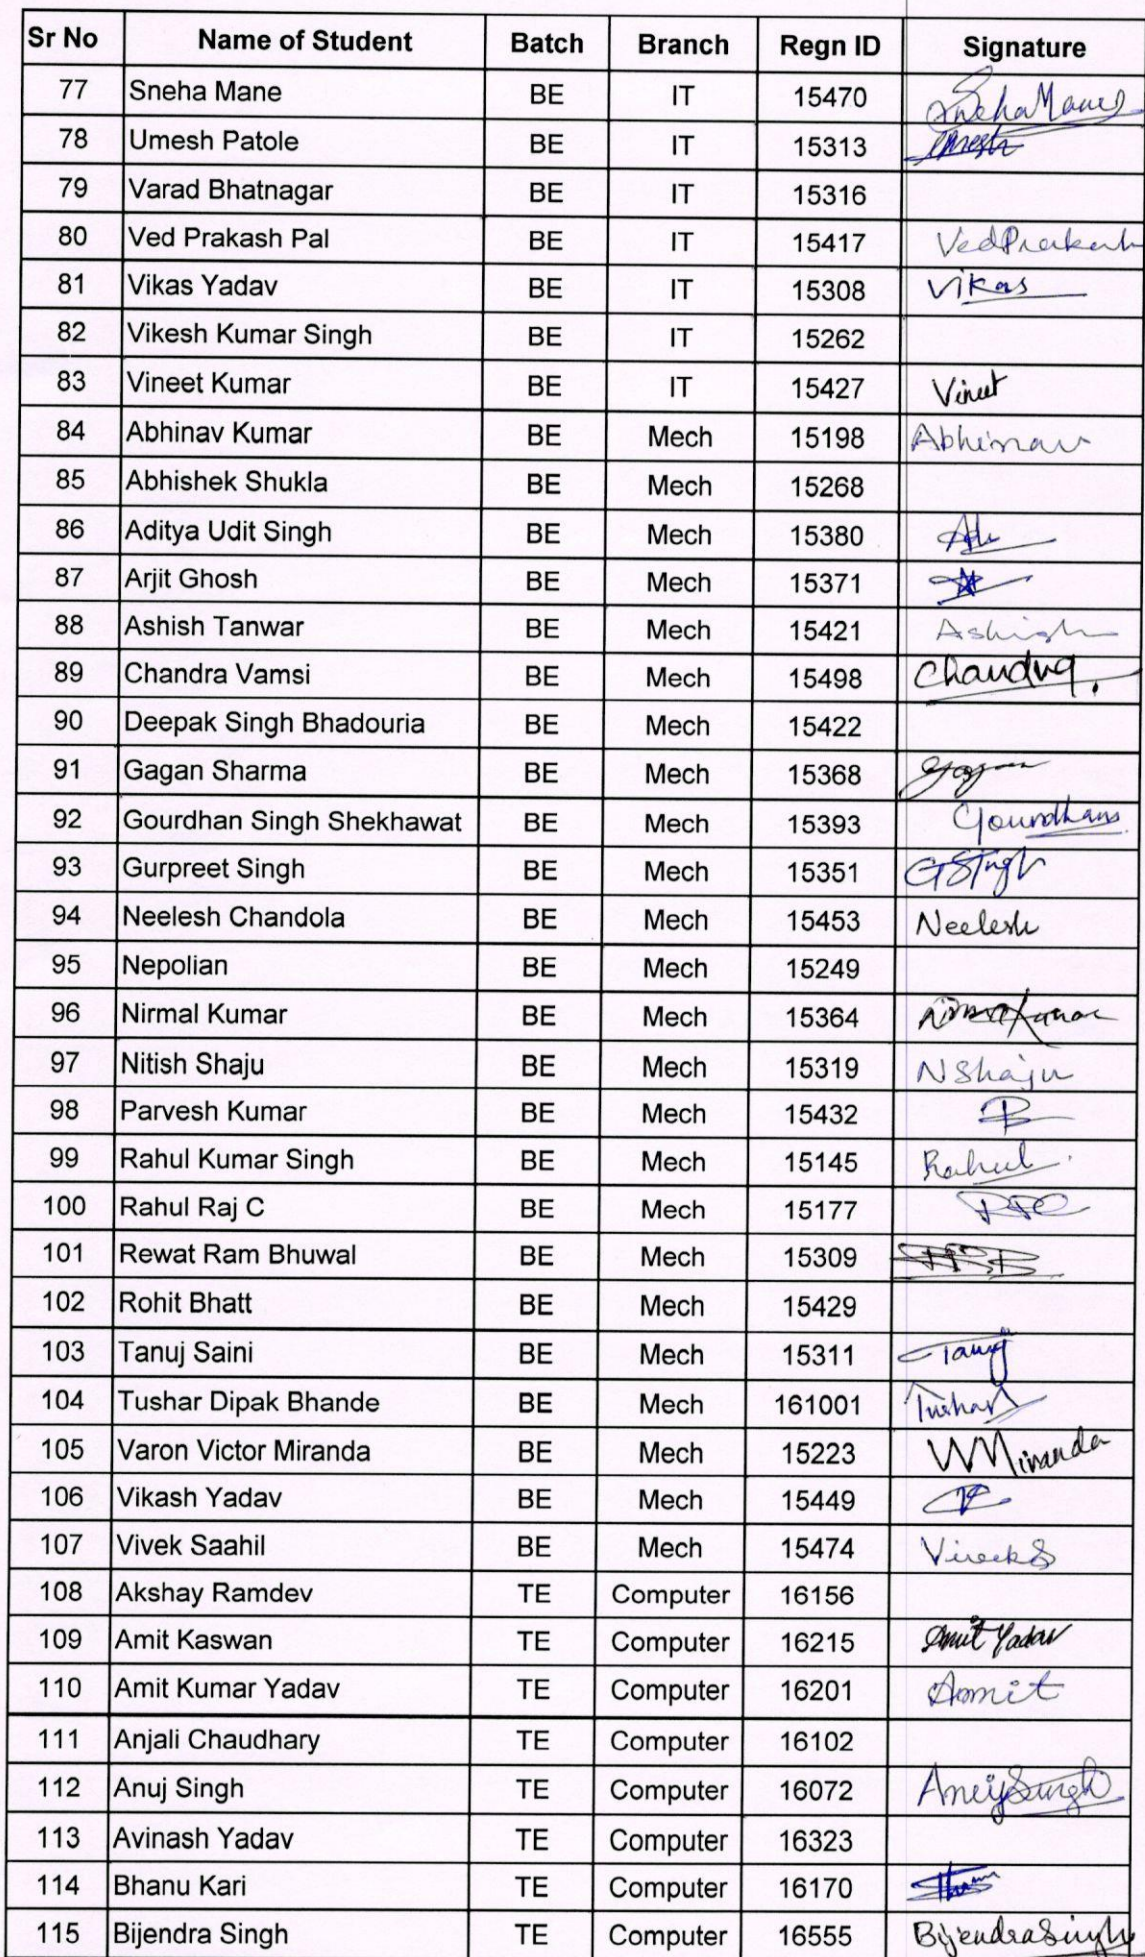 Sr No Name of Student Batch Branch Regn ID Signature
77 Sneha Mane BE IT 15470 Sneha Mane
78 Umesh Patole BE IT 15313 Umesh
79 Varad Bhatnagar BE IT 15316
80 Ved Prakash Pal BE IT 15417 Ved Prakash
81 Vikas Yadav BE IT 15308 Vikas
82 Vikesh Kumar Singh BE IT 15262
83 Vineet Kumar BE IT 15427 Vineet
84 Abhinav Kumar BE Mech 15198 Abhinav
85 Abhishek Shukla BE Mech 15268
86 Aditya Udit Singh BE Mech 15380
87 Arjit Ghosh BE Mech 15371
88 Ashish Tanwar BE Mech 15421 Ashish
89 Chandra Vamsi BE Mech 15498 Chandra.
90 Deepak Singh Bhadouria BE Mech 15422
91 Gagan Sharma BE Mech 15368 Gagan
92 Gourdhan Singh Shekhawat BE Mech 15393 Gourdhans
93 Gurpreet Singh BE Mech 15351 GSingh
94 Neelesh Chandola BE Mech 15453 Neelesh
95 Nepolian BE Mech 15249
96 Nirmal Kumar BE Mech 15364 Nirmal Kumar
97 Nitish Shaju BE Mech 15319 NShaju
98 Parvesh Kumar BE Mech 15432
99 Rahul Kumar Singh BE Mech 15145 Rahul
100 Rahul Raj C BE Mech 15177
101 Rewat Ram Bhuwal BE Mech 15309
102 Rohit Bhatt BE Mech 15429
103 Tanuj Saini BE Mech 15311 Tanuj
104 Tushar Dipak Bhande BE Mech 161001 Tushar
105 Varon Victor Miranda BE Mech 15223 VVMiranda
106 Vikash Yadav BE Mech 15449
107 Vivek Saahil BE Mech 15474 Vivek S
108 Akshay Ramdev TE Computer 16156
109 Amit Kaswan TE Computer 16215 Amit Yadav
110 Amit Kumar Yadav TE Computer 16201 Amit
111 Anjali Chaudhary TE Computer 16102
112 Anuj Singh TE Computer 16072 Anuj Singh
113 Avinash Yadav TE Computer 16323
114 Bhanu Kari TE Computer 16170
115 Bijendra Singh TE Computer 16555 Bijendra Singh